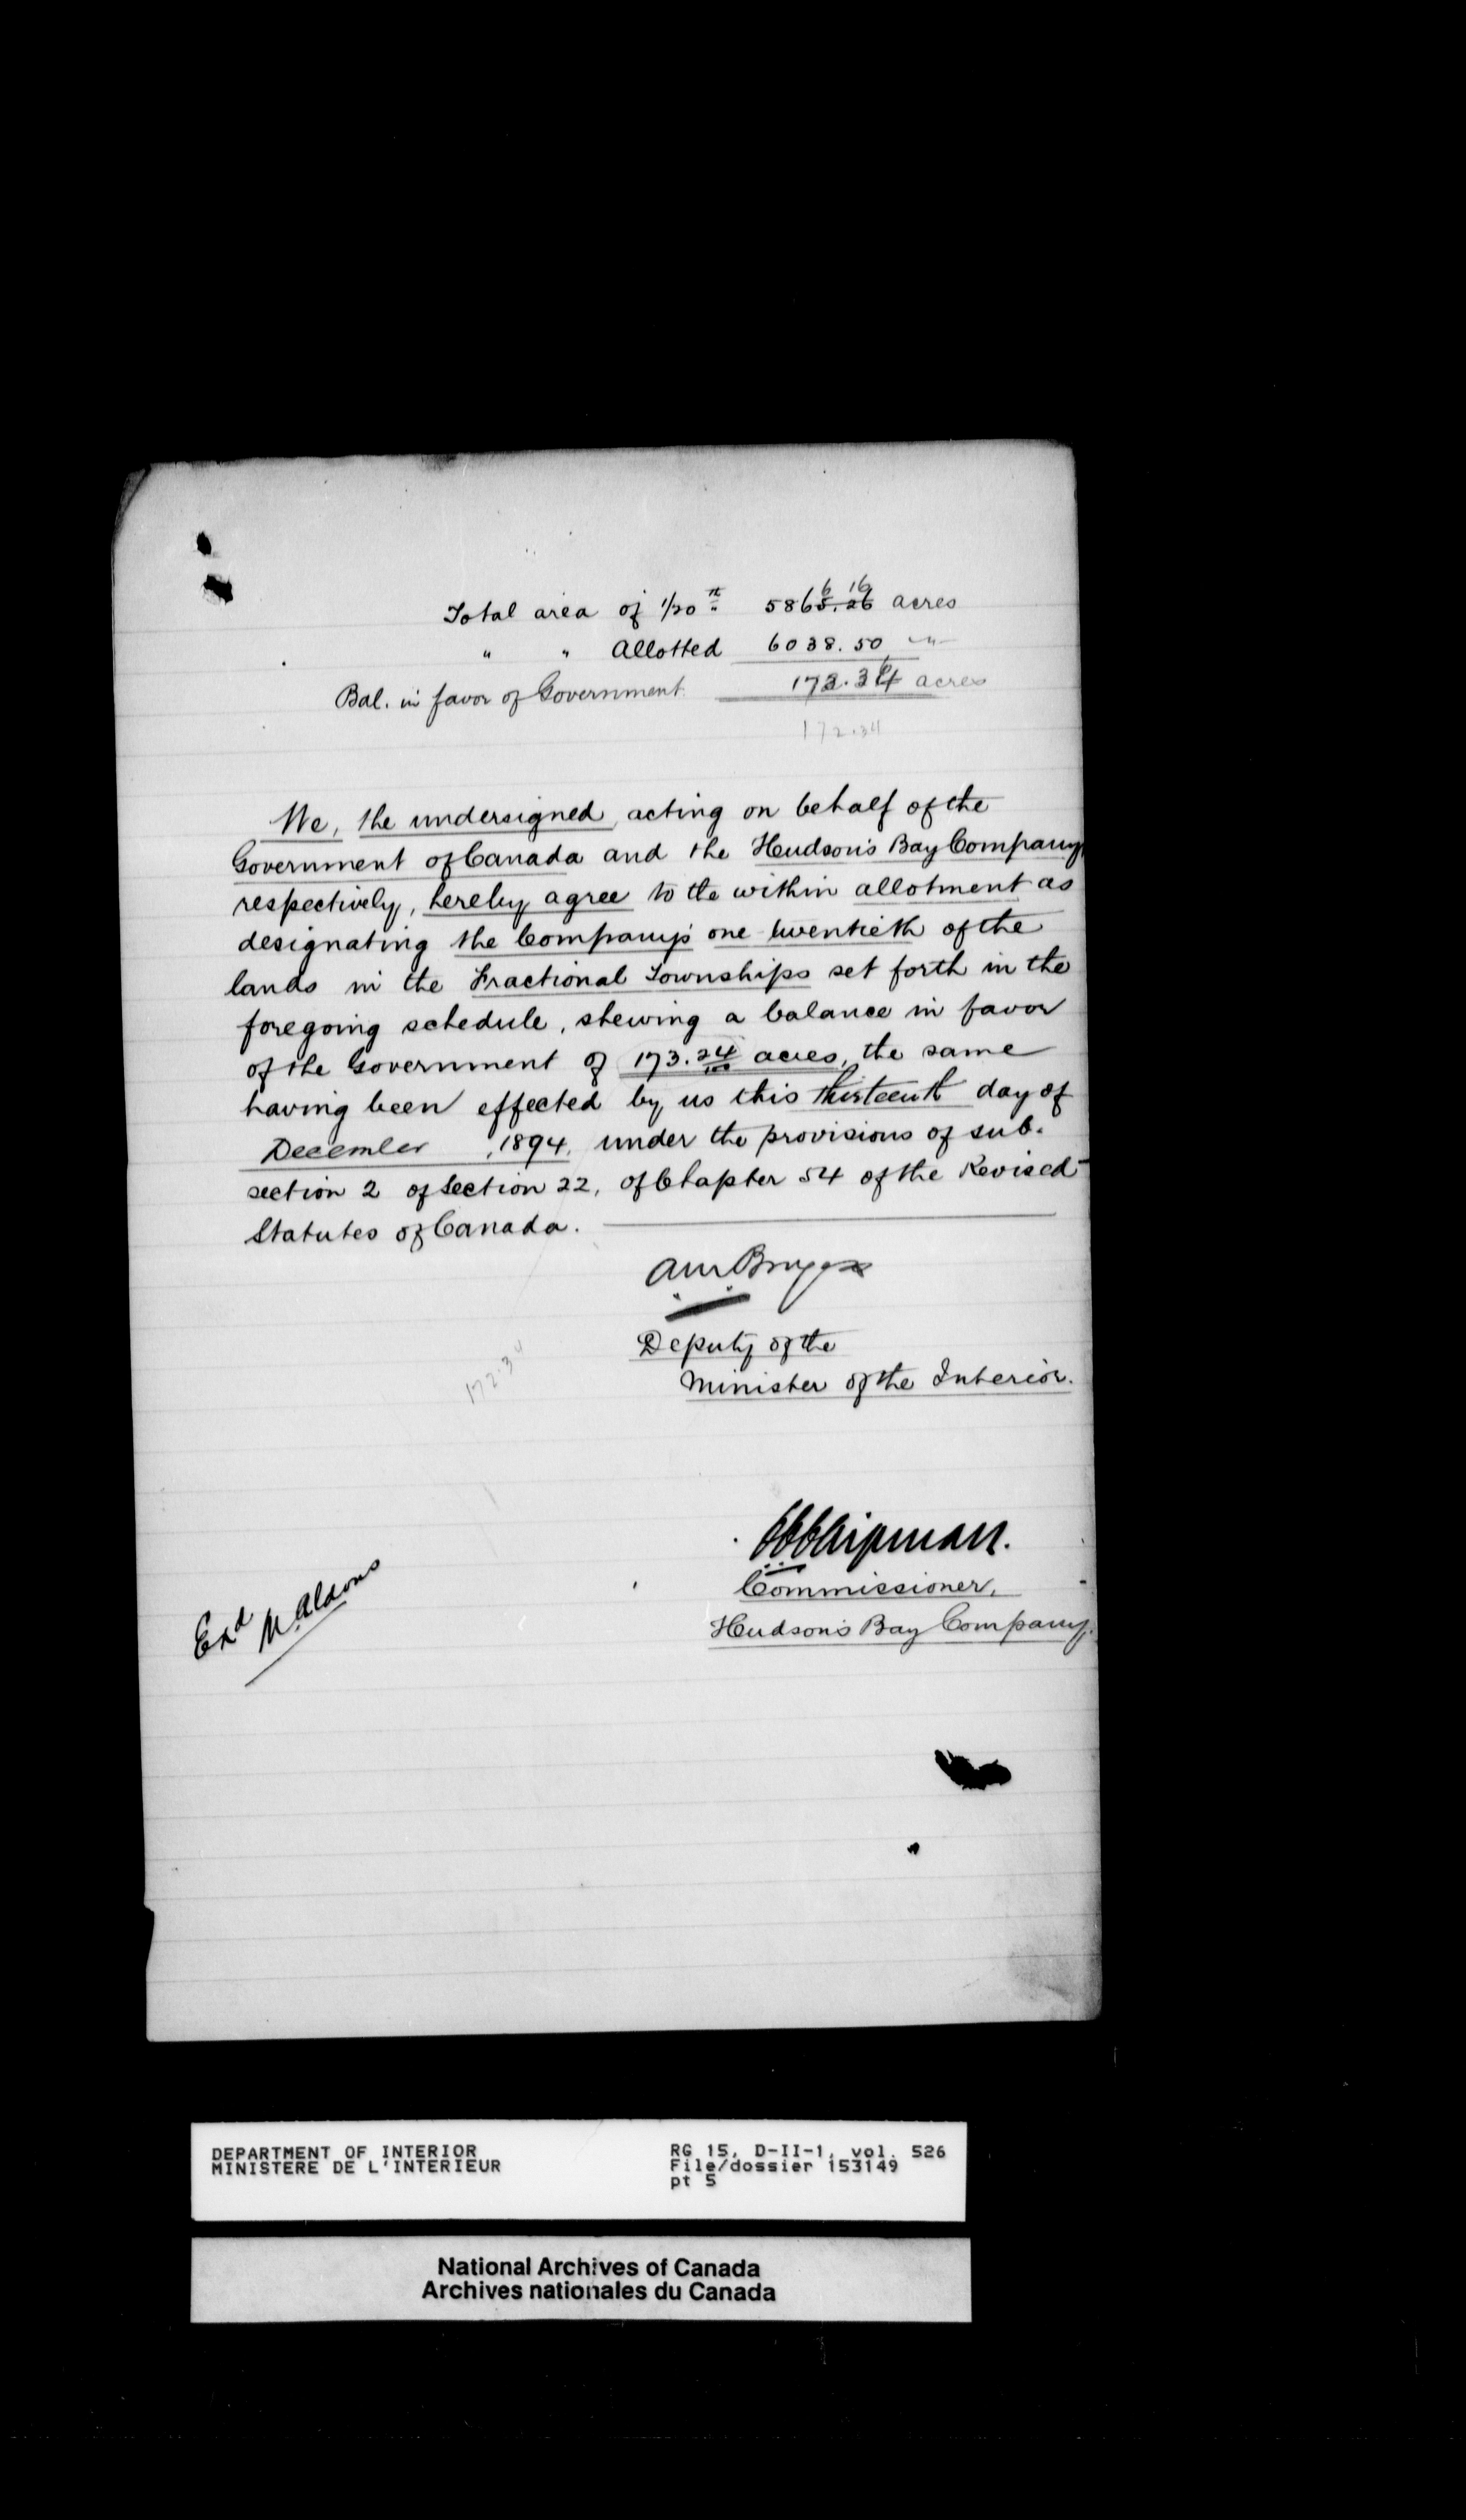 6 16
Total area of 1/20th 5865.26 acres
" " Allotted 6038.50 "
Bal. in favor of Government 172.34 acres
172.34
We, the undersigned, acting on behalf of the
Government of Canada and the Hudson's Bay Company,
respectively, hereby agree to the within allotment as
designating the Company's one twentieth of the
lands in the Fractional Townships set forth in the
foregoing schedule, shewing a balance in favor
of the Government of 173.24/100 acres, the same
having been effected by us this thirteenth day of
December, 1894, under the provisions of sub-
section 2 of Section 22, of Chapter 54 of the Revised
Statutes of Canada.
Deputy of the
Minister of the Interior.
172.34
CCChipman.
Commissioner,
Hudson's Bay Company.
Exd
DEPARTMENT OF INTERIOR
MINISTERE DE L'INTERIEUR
RG 15, D-II-1, vol. 526
File/dossier 153149
pt 5
National Archives of Canada
Archives nationales du Canada